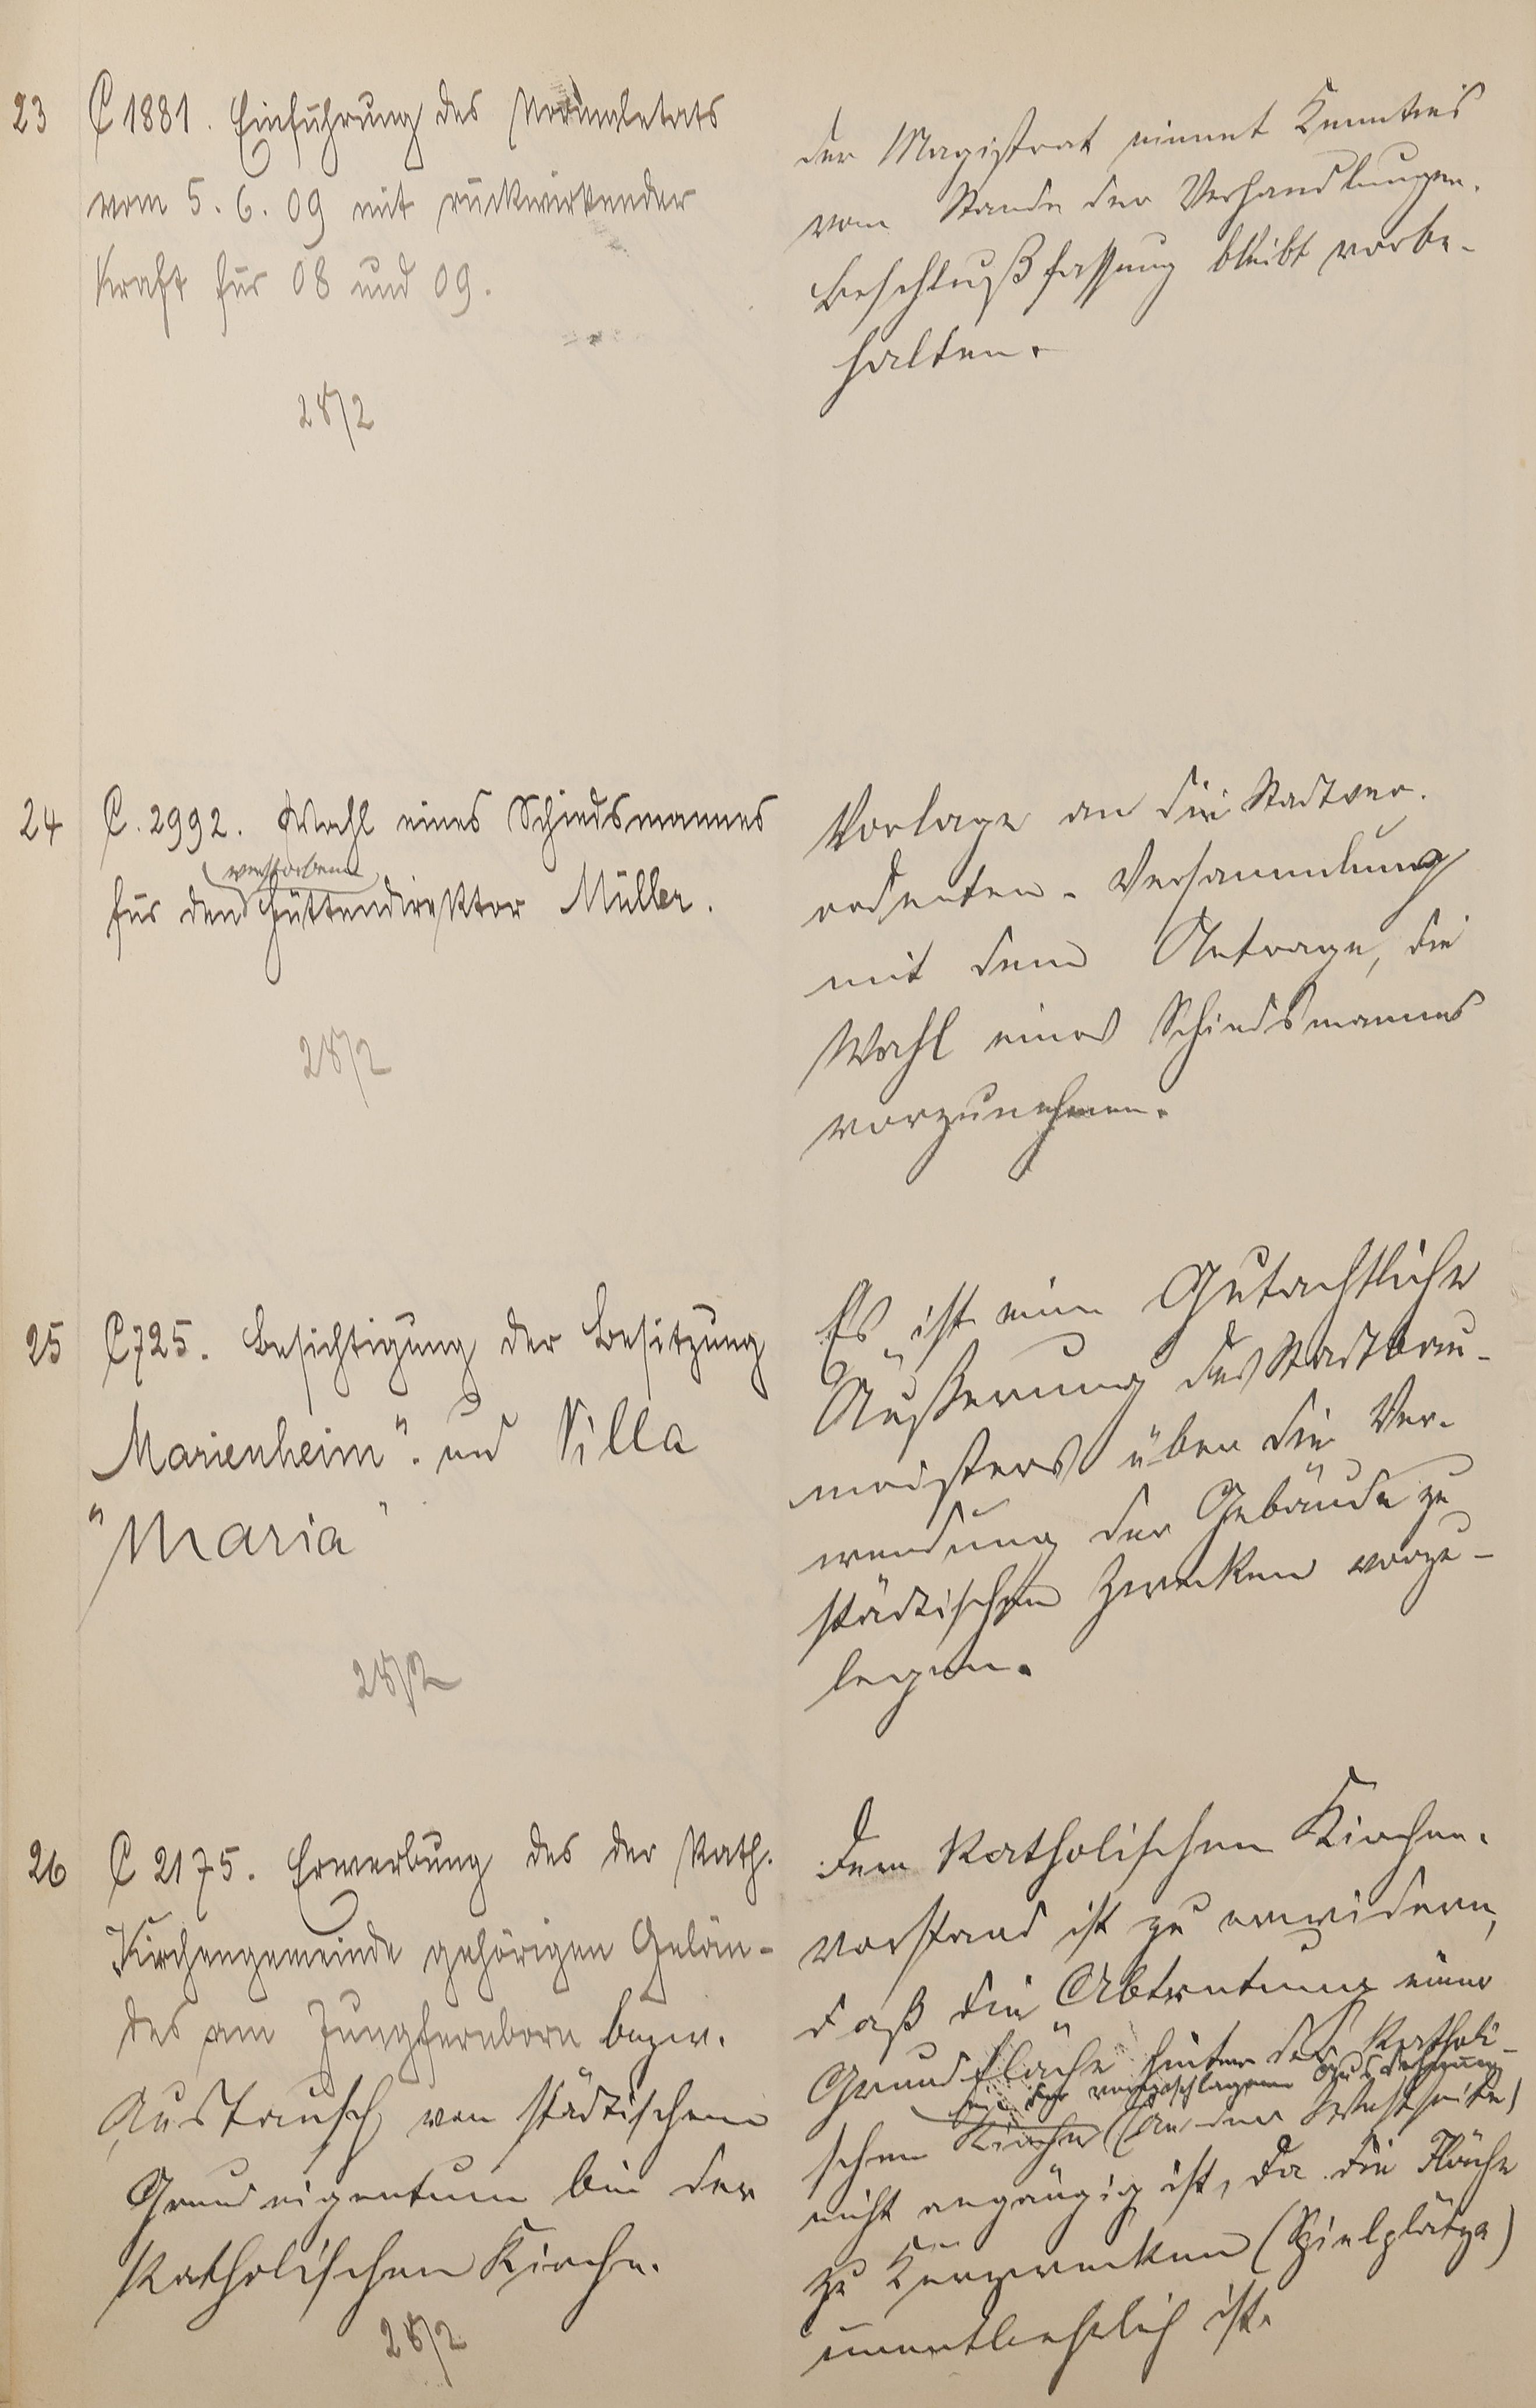 23 C 1881. Einführung des Normaletats
vom 5. 6. 09 mit rückwirkender
Kraft für 08 und 09.
28/2
Der Magistrat nimmt Kenntnis
vom Stande der Verhandlungen.
Beschlußfassung bleibt vorbe-
halten.
24 C. 2992. Wahl eines Schiedsmannes
verstorbenen
für den Hüttendirektor Müller.
28/2
Vorlage an die Stadtver.
ordneten-Versammlung
mit dem Antrage, die
Wahl eines Schiedsmannes
vorzunehmen.
25 C 725. Besichtigung der Besitzung
Marienheim". und Villa
"Maria"
28/2
Es ist eine Gutachtliche
Äußerung des Stadtbau-
meisters über die Ver-
wendung der Gebäude zu
städtischen Zwecken vorzu-
legen.
26 C 2175. Erwerbung des der Kath.
Kirchengemeinde gehörigen Gelän-
des am Jungfernborn bezw.
Austausch von städtischem
Grundeigentum bei der
Katholischen Kirche.
28/2
Dem Katholischen Kirchen-
vorstand ist zu erwidern,
daß die Abtretung einer
Grundfläche hinter der Katholi-
in der vorgeschlagenen Ausdehnung
schen Kirche (an der Westseite)
nicht angängig ist, da die Fläche
zu Kurzwecken (Spielplätze)
unentbehrlich ist.